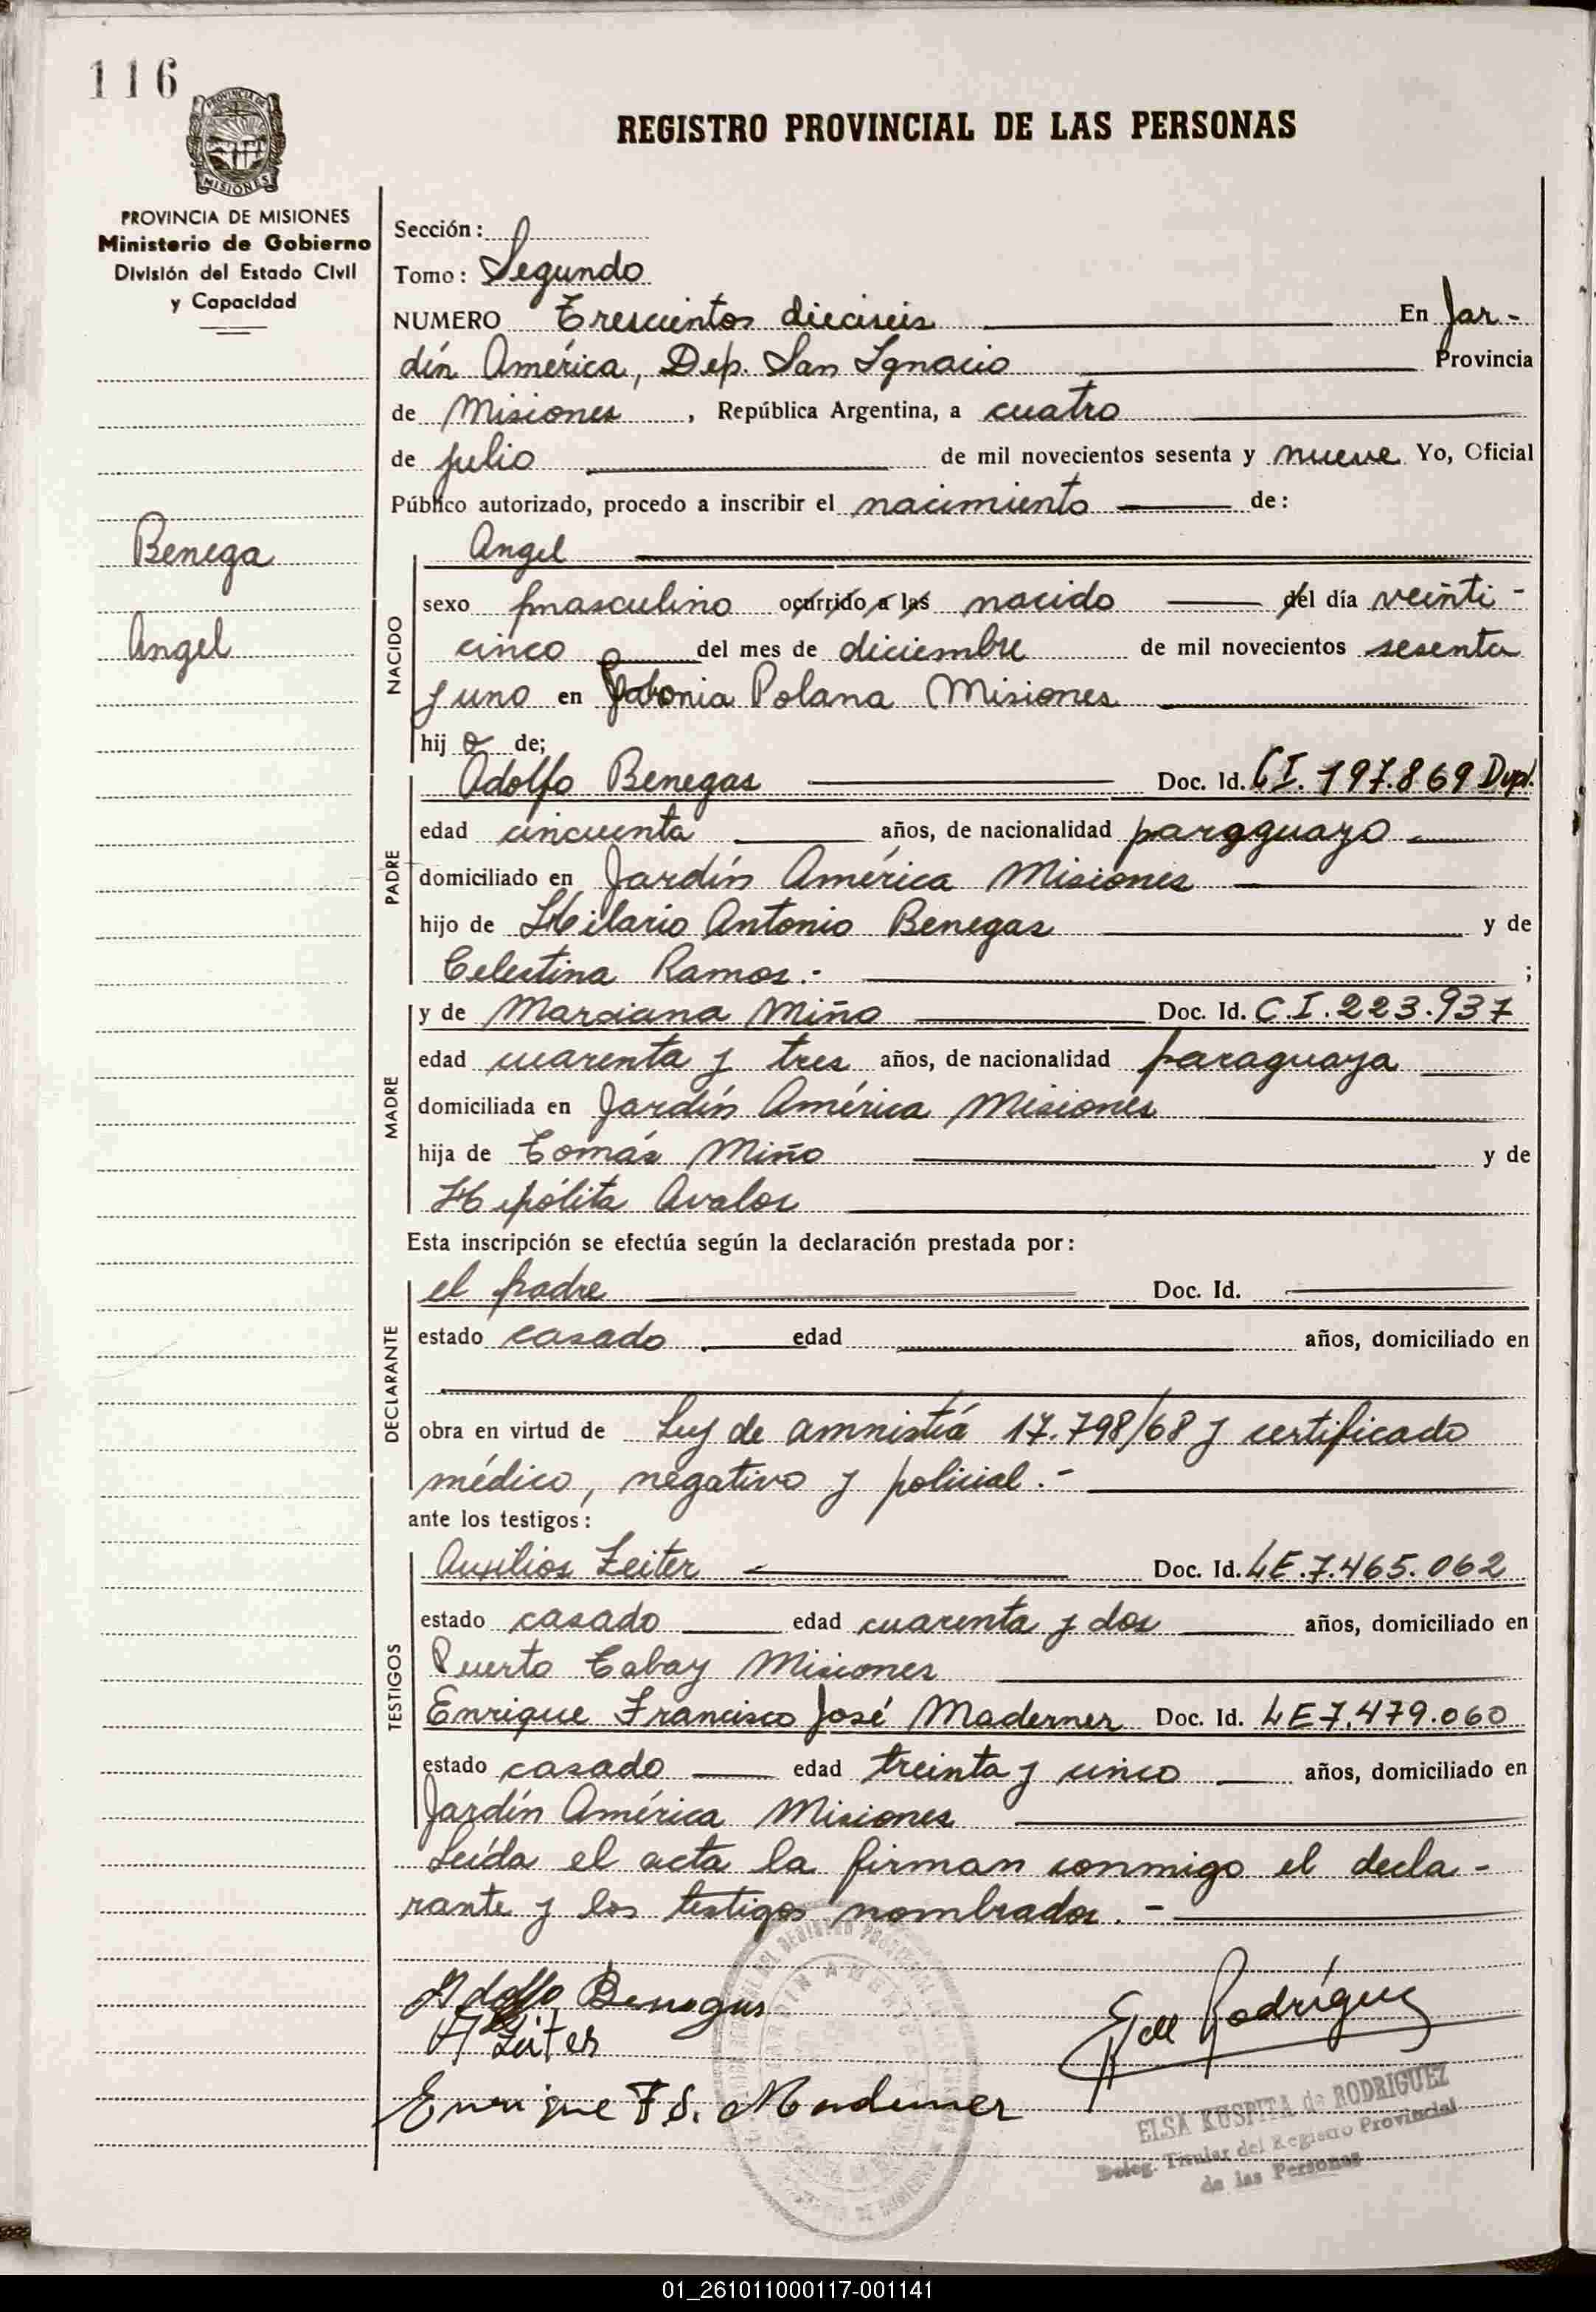 116
PROVINCIA DE
MISIONES
REGISTRO PROVINCIAL DE LAS PERSONAS
PROVINCIA DE MISIONES
Ministerio de Gobierno
División del Estado Civil
y Capacidad
Benega
Angel
Sección:
Tomo: Segundo
NUMERO Trescientos dieciseis En Jar-
dín América, Dep. San Ignacio Provincia
de Misiones, República Argentina, a cuatro
de julio de mil novecientos sesenta y nueve Yo, Oficial
Público autorizado, procedo a inscribir el nacimiento de:
NACIDO
Angel
sexo masculino ocurrido a las nacido del día veinti-
cinco del mes de diciembre de mil novecientos sesenta
y uno en Colonia Polana Misiones
hijo de;
PADRE
Adolfo Benegas Doc. Id. CI. 197.869 Dupl.
edad cincuenta años, de nacionalidad paraguayo
domiciliado en Jardín América Misiones
hijo de Hilario Antonio Benegas y de
Celestina Ramos.- ;
MADRE
y de Marciana Miño Doc. Id. C.I. 223.937
edad cuarenta y tres años, de nacionalidad paraguaya
domiciliada en Jardín América Misiones
hija de Tomás Miño y de
Hipólita Avalos
Esta inscripción se efectúa según la declaración prestada por:
DECLARANTE
el padre Doc. Id.
estado casado edad años, domiciliado en
obra en virtud de Ley de amnistía 17.798/68 y certificado
médico, negativo y policial.-
ante los testigos:
TESTIGOS
Auxilios Zeiter Doc. Id. LE.7.465.062
estado casado edad cuarenta y dos años, domiciliado en
Puerto Tabay Misiones
Enrique Francisco José Maderner Doc. Id. LE 7.479.060
estado casado edad treinta y cinco años, domiciliado en
Jardín América Misiones
Leída el acta la firman conmigo el decla-
rante y los testigos nombrados.-
Adolfo Benegas
A Zeiter
Enrique F. J. Maderner
E de Rodríguez
ELSA KUSPITA de RODRIGUEZ
Deleg. Titular del Registro Provincial
de las Personas
01_261011000117-001141